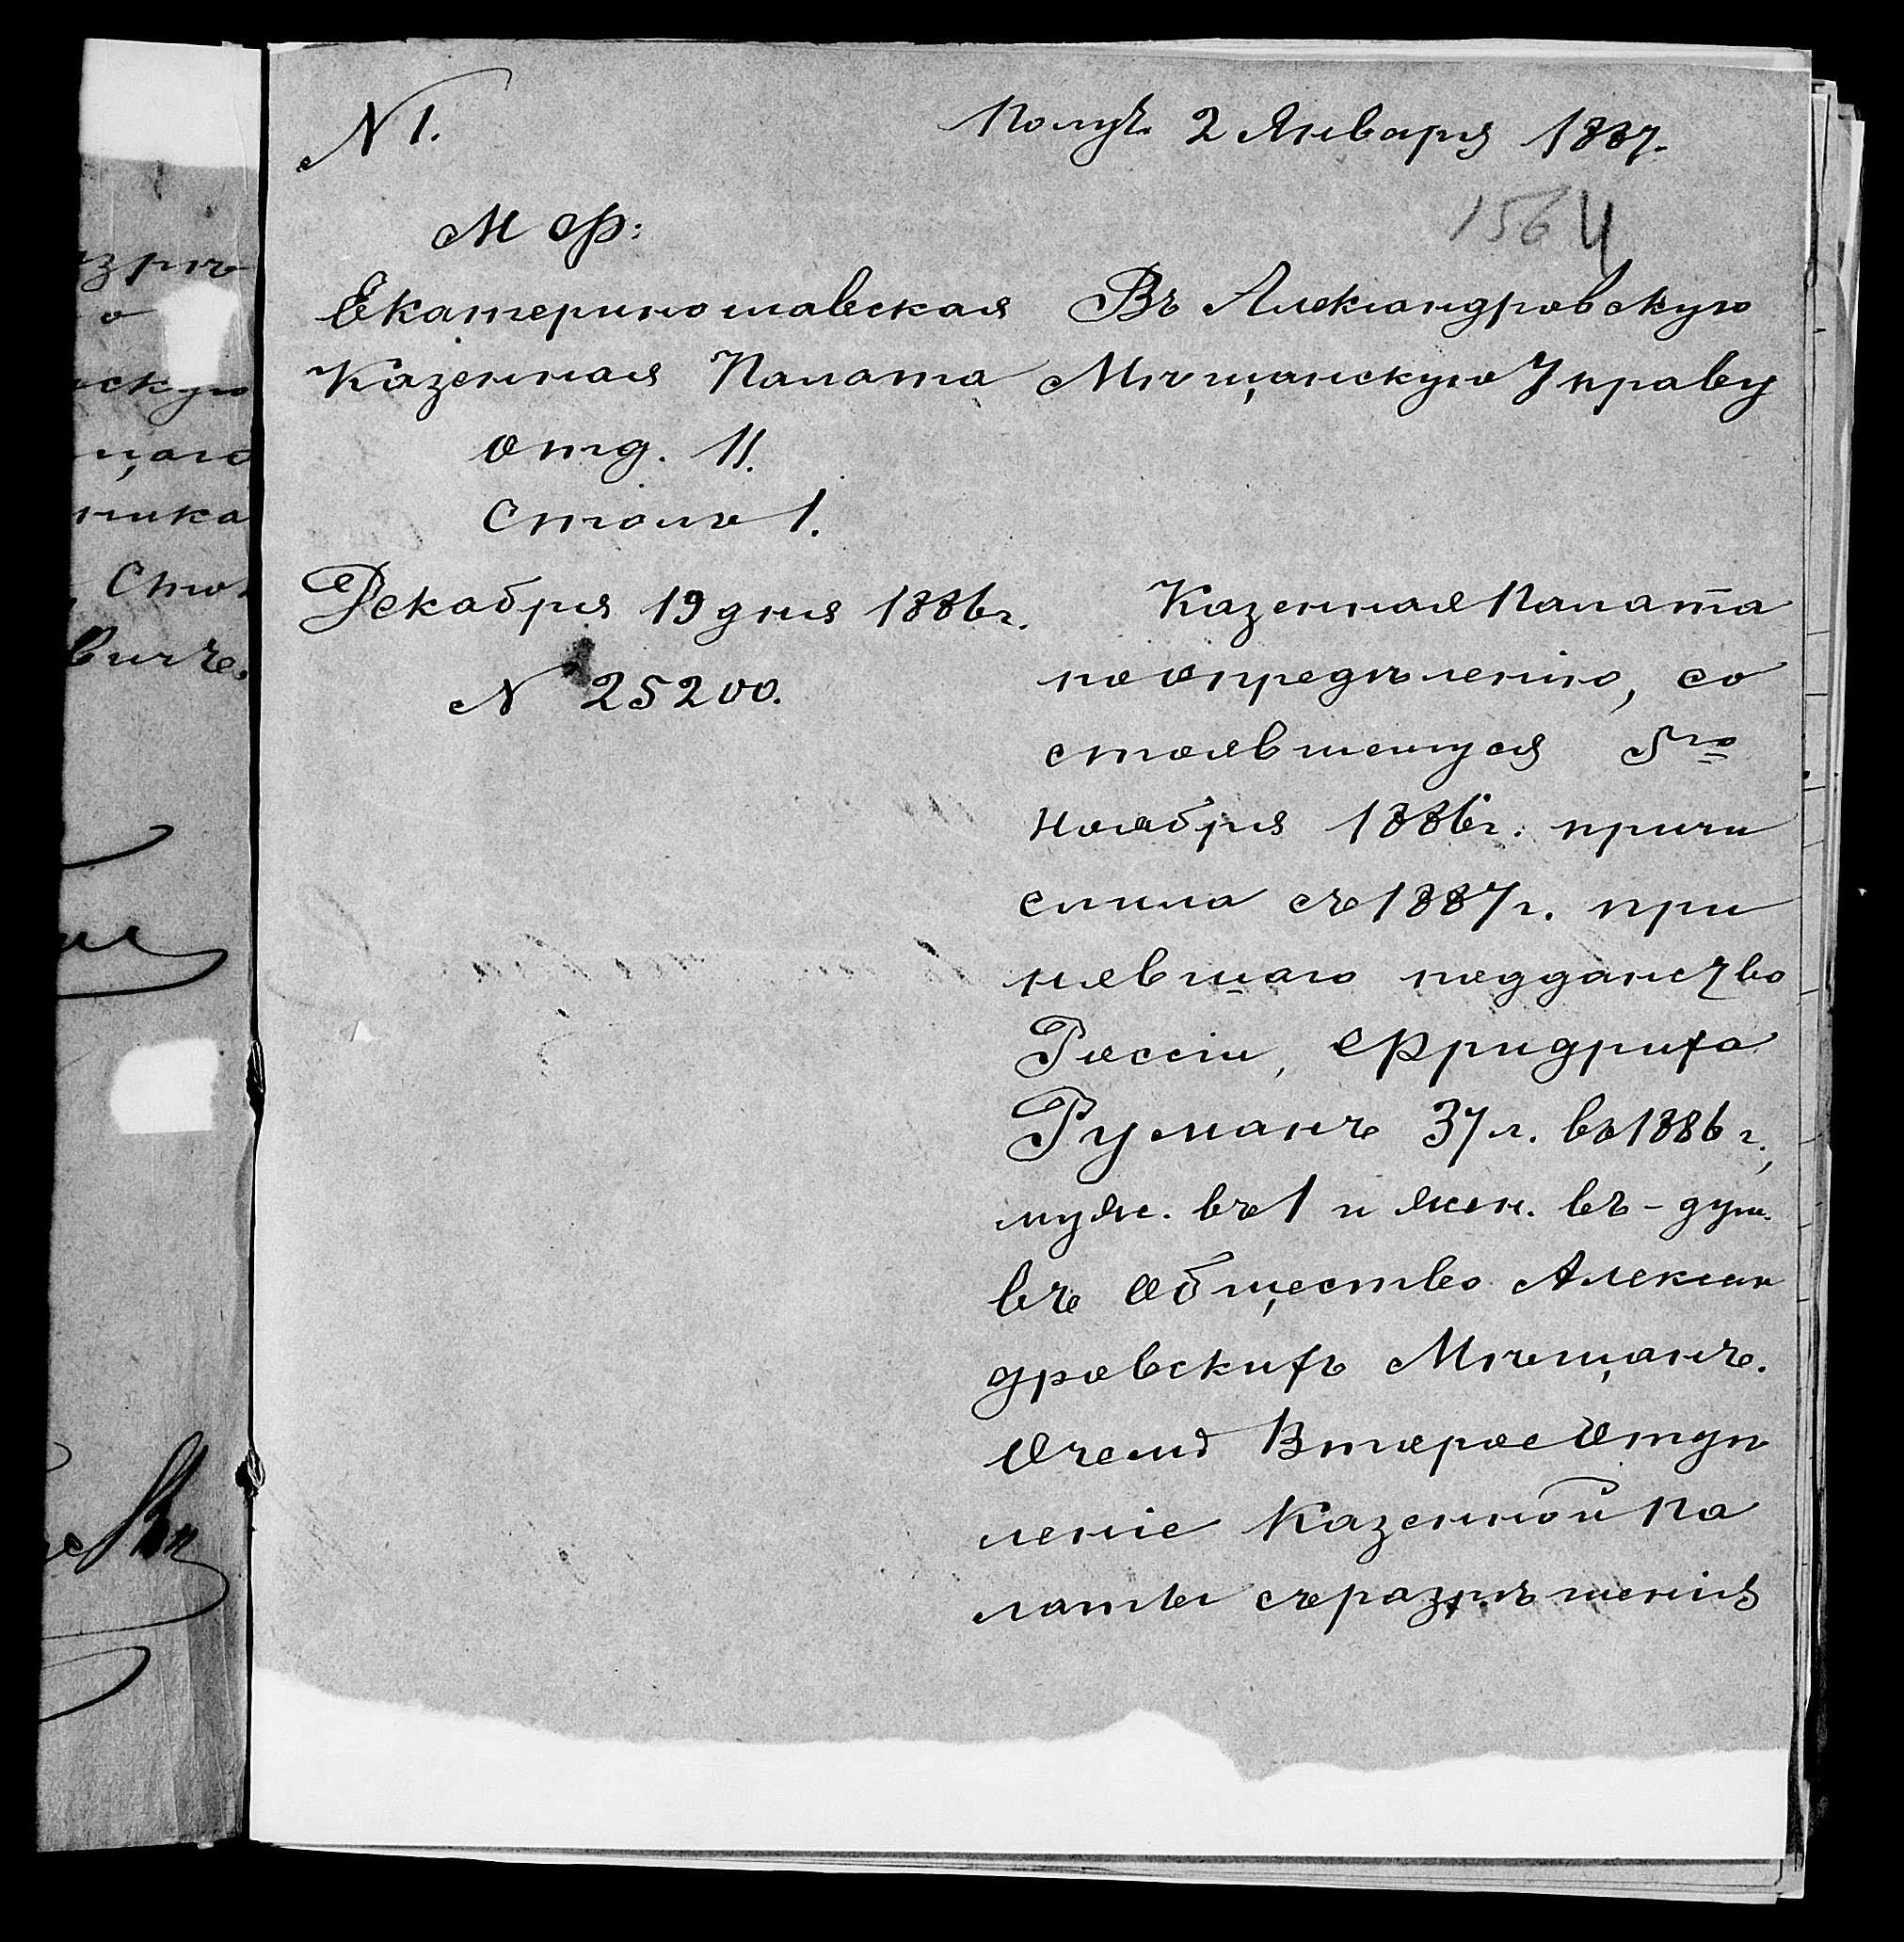 N 1.
Получ. 2 Января 1887.
156 4
М Ф:
Екатеринославская
Казенная Палата
Отд. II.
Столъ 1.
Декабря 19 дня 1886 г.
N 25200.
Въ Александровскую
Мѣщанскую Управу
Казенная Палата
по опредѣленію, со
стоявшемуся 5го
Ноября 1886 г. причи
слила съ 1887 г. при
нявшаго подданство
Россіи, Фридриха
Руманъ 37 л. въ 1886 г.,
муж. въ 1 и жен. въ - душ.
въ Общество Алексан
дровскихъ Мѣщанъ.
О чемъ Второе Отдѣ
леніе Казенной Па
латы съ разрѣшенія
зрѣ
о
скую
щаго
ника
Сто
вичъ.